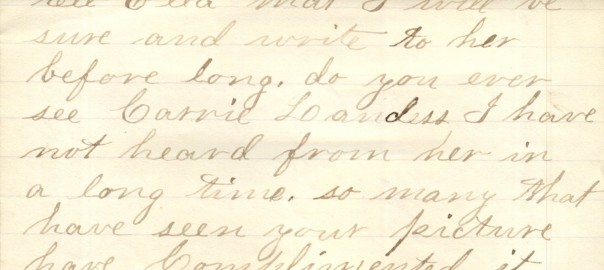 tell Ella that I will be
sure and write to her
before long. do you ever
see Carrie Landess I have
not heard from her in
a long time. so many that
have seen your picture
have Complimented it